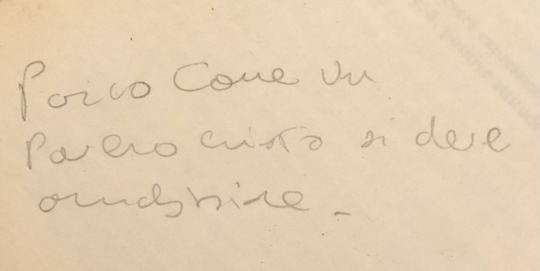 Porco Cane un
Povero cristo si deve